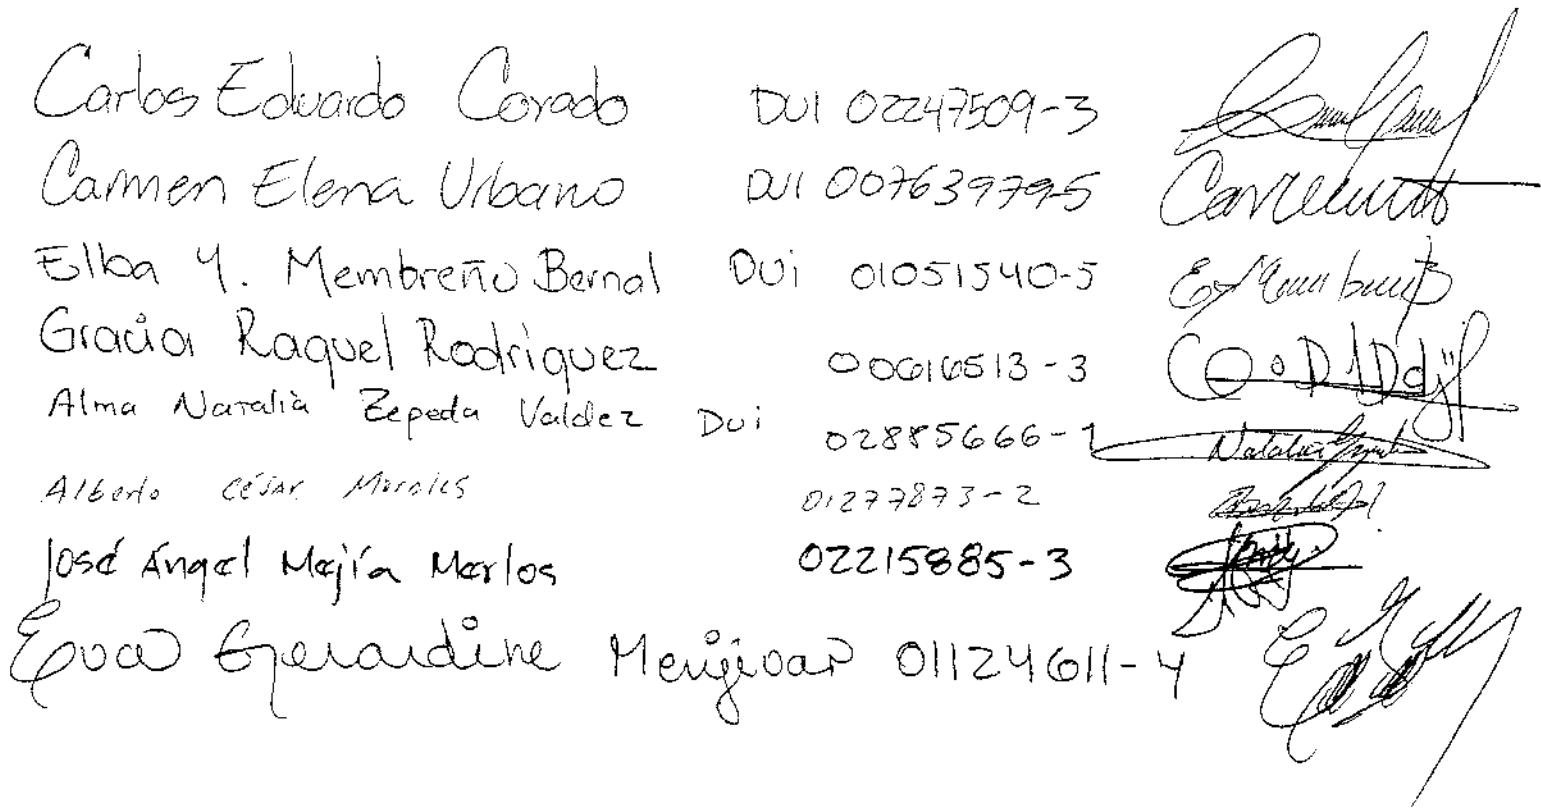 Carlos Eduardo Corado DUI 02247509-3
Carmen Elena Urbano DUI 00763979-5
Elba Y. Membreño Bernal DUi 01051540-5
Gracia Raquel Rodriguez 00616513-3
Alma Natalia Zepeda Valdez Dui 02885666-1 Natalia
Alberto César Morales 01277873-2
José Ángel Mejía Merlos 02215885-3
Eva Gerardine Menjivar 01124611-4